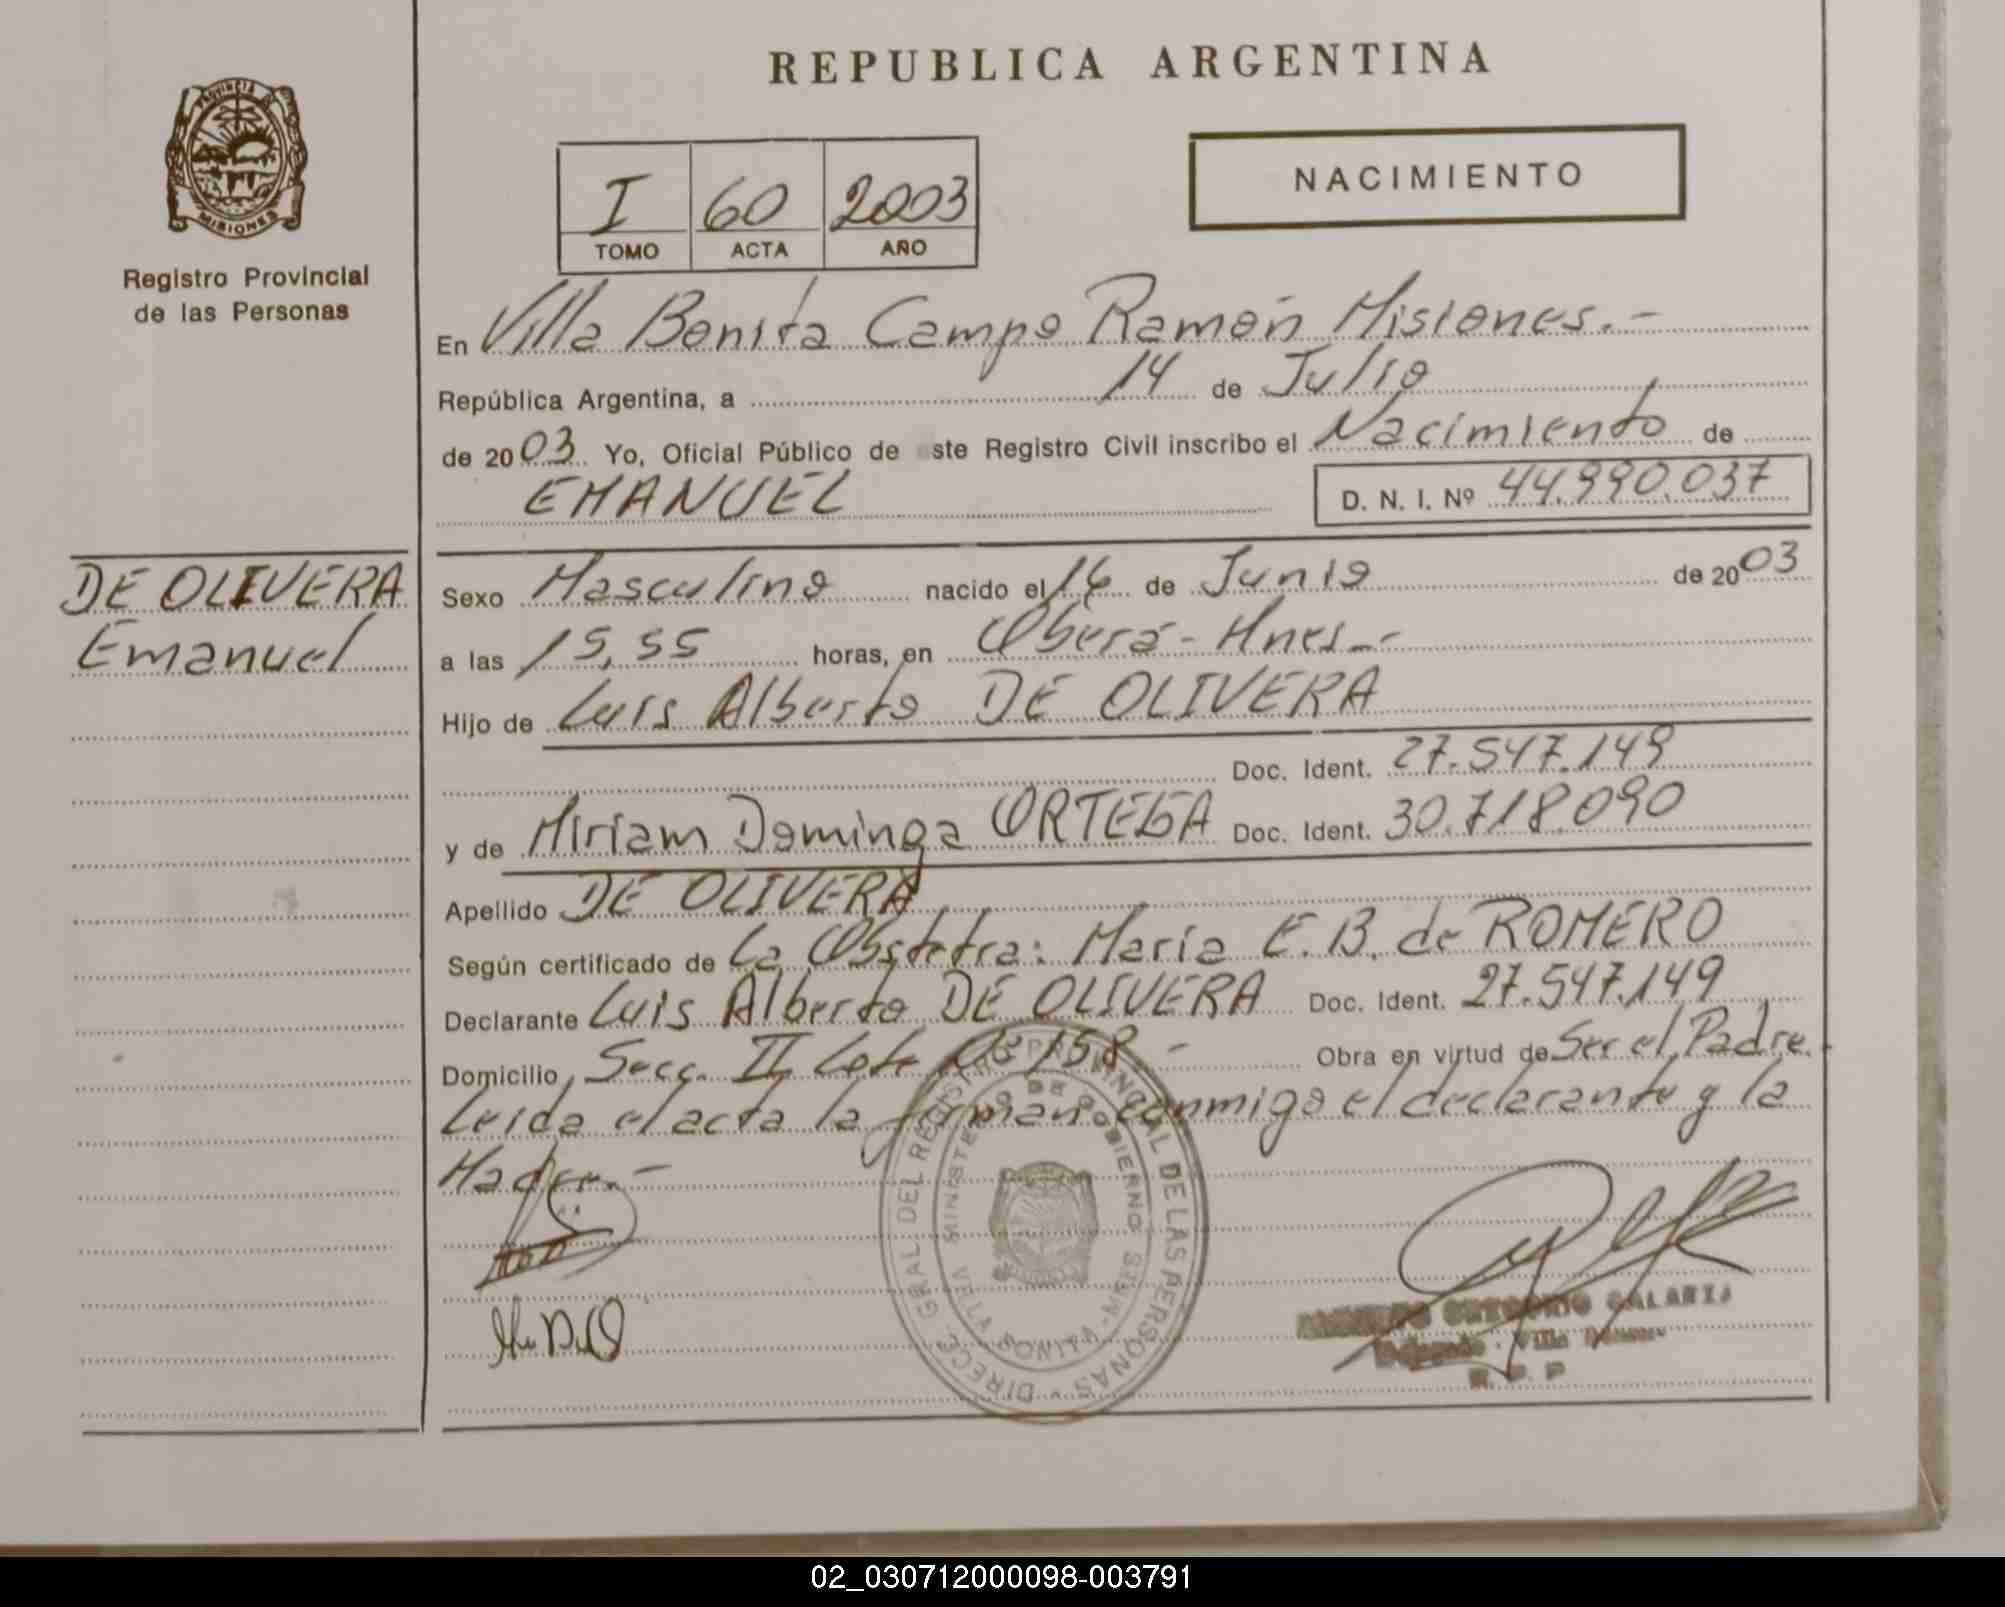 REPUBLICA ARGENTINA
PROVINCIA DE
MISIONES
Registro Provincial
de las Personas
I 60 2003
TOMO ACTA AÑO
NACIMIENTO
En Villa Bonita Campo Ramón Misiones.-
República Argentina, a 14 de Julio
de 2003 Yo, Oficial Público de este Registro Civil inscribo el Nacimiento de
EMANUEL D. N. I. Nº 44.990.037
DE OLIVERA
Emanuel
Sexo Masculino nacido el de Junio de 2003
a las 15,55 horas, en Oberá - Mnes.-
Hijo de Luis Alberto DE OLIVERA
Doc. Ident. 27.547.149
y de Miriam Dominga ORTEGA Doc. Ident. 30.718.090
Apellido DE OLIVERA
Según certificado de La Obstetra: María E. B. de ROMERO
Declarante Luis Alberto DE OLIVERA Doc. Ident. 27.547.149
Domicilio Secc. II Lote 158.- Obra en virtud de Ser el Padre.
Leida el acta la firman conmigo el declarante y la
Madre.-
DIRECC. GRAL DEL REGISTRO PROVINCIAL DE LAS PERSONAS
MINISTERIO DE GOBIERNO
VILLA BONITA - MNES
GREGORIO GALARZA
Delegado - Villa Bonita
R. P. P
02_030712000098-003791